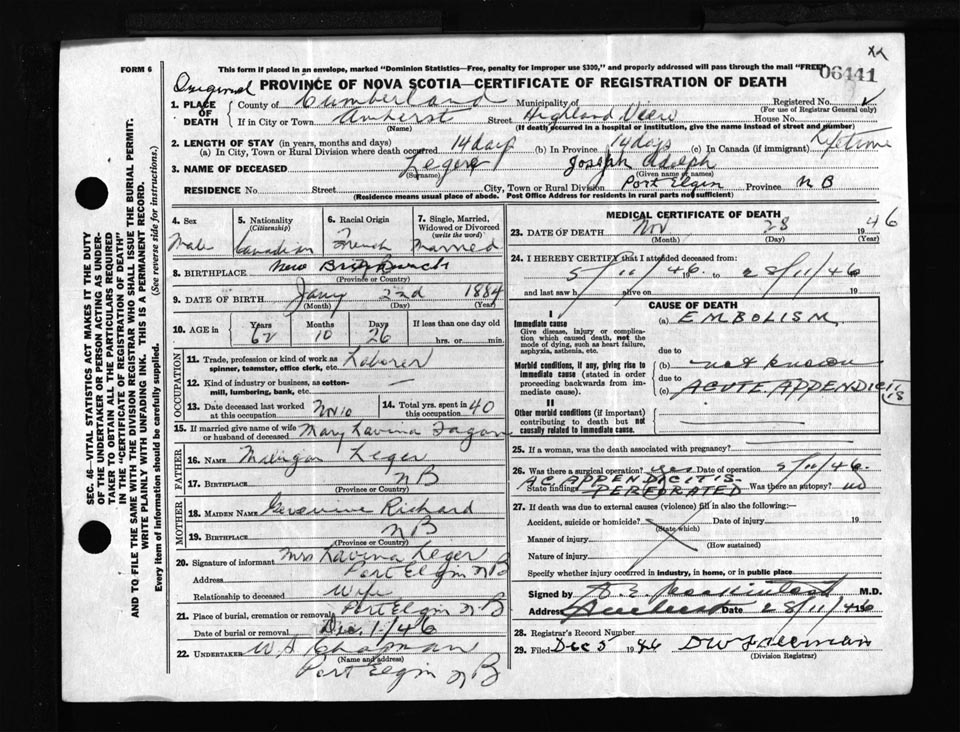 X2
FORM 6
This form if placed in an envelope, marked "Dominion Statistics—Free, penalty for improper use $300," and properly addressed will pass through the mail "FREE"
06441
Original PROVINCE OF NOVA SCOTIA—CERTIFICATE OF REGISTRATION OF DEATH
1. PLACE OF DEATH
County of Cumberland Municipality of Registered No.
(For use of Registrar General only)
If in City or Town Amherst Street Highland View House No.
(Name) (If death occurred in a hospital or institution, give the name instead of street and number)
2. LENGTH OF STAY (in years, months and days)
(a) In City, Town or Rural Division where death occurred 14 days (b) In Province 14 days (c) In Canada (if immigrant) Lifetime
3. NAME OF DECEASED Legere Joseph Adolph
(Surname) (Given name or names)
RESIDENCE No. Street City, Town or Rural Division Port Elgin Province N B
(Residence means usual place of abode. Post Office Address for residents in rural parts not sufficient)
4. Sex
Male
5. Nationality
(Citizenship)
Canadian
6. Racial Origin
French
7. Single, Married, Widowed or Divorced
(write the word)
Married
8. BIRTHPLACE New Brunswick
(Province or Country)
9. DATE OF BIRTH Jany 22d 1884
(Month) (Day) (Year)
10. AGE in
Years Months Days If less than one day old
62 10 26 hrs. or min.
OCCUPATION
11. Trade, profession or kind of work as spinner, teamster, office clerk, etc. Laborer
12. Kind of industry or business, as cotton-mill, lumbering, bank, etc. —
13. Date deceased last worked at this occupation Nov 10
14. Total yrs. spent in this occupation 40
15. If married give name of wife or husband of deceased Mary Lavina Fagan
FATHER
16. NAME Leger
17. BIRTHPLACE N B
(Province or Country)
MOTHER
18. MAIDEN NAME Richard
19. BIRTHPLACE N B
(Province or Country)
20. Signature of informant Mrs Lavina Leger
Address Port Elgin N B
Relationship to deceased Wife
21. Place of burial, cremation or removal Port Elgin N B
Date of burial or removal Dec. 1/46
22. UNDERTAKER W. S. Chapman
(Name and address)
Port Elgin N B
MEDICAL CERTIFICATE OF DEATH
23. DATE OF DEATH Nov 28 1946
(Month) (Day) (Year)
24. I HEREBY CERTIFY that I attended deceased from:
5/11/46 19 to 28/11/46
and last saw h alive on 19
CAUSE OF DEATH
I
Immediate cause
Give disease, injury or complication which caused death, not the mode of dying, such as heart failure, asphyxia, asthenia, etc.
(a) EMBOLISM
due to
Morbid conditions, if any, giving rise to immediate cause (stated in order proceeding backwards from immediate cause)
(b) not known
due to
(c) ACUTE APPENDICITIS
II
Other morbid conditions (if important) contributing to death but not causally related to immediate cause.
25. If a woman, was the death associated with pregnancy?
26. Was there a surgical operation? yes Date of operation 5/11/46
State findings AC. APPENDICITIS- PERFORATED Was there an autopsy? no
27. If death was due to external causes (violence) fill in also the following:—
Accident, suicide or homicide? Date of injury 19
(State which)
Manner of injury
(How sustained)
Nature of injury
Specify whether injury occurred in industry, in home, or in public place
Signed by M.D.
Address Amherst Date 28/11/46
28. Registrar's Record Number
29. Filed Dec 5 1946
(Division Registrar)
SEC. 46—VITAL STATISTICS ACT MAKES IT THE DUTY
OF THE UNDERTAKER OR PERSON ACTING AS UNDER-
TAKER TO OBTAIN ALL THE PARTICULARS REQUIRED
IN THE "CERTIFICATE OF REGISTRATION OF DEATH"
AND TO FILE THE SAME WITH THE DIVISION REGISTRAR WHO SHALL ISSUE THE BURIAL PERMIT.
WRITE PLAINLY WITH UNFADING INK. THIS IS A PERMANENT RECORD.
Every item of information should be carefully supplied. (See reverse side for instructions.)